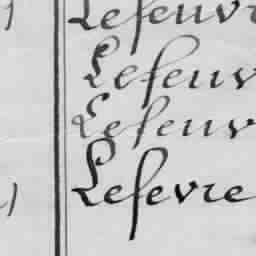 Lefeuvr
Lefeuv
Lefeuv
Lefevre